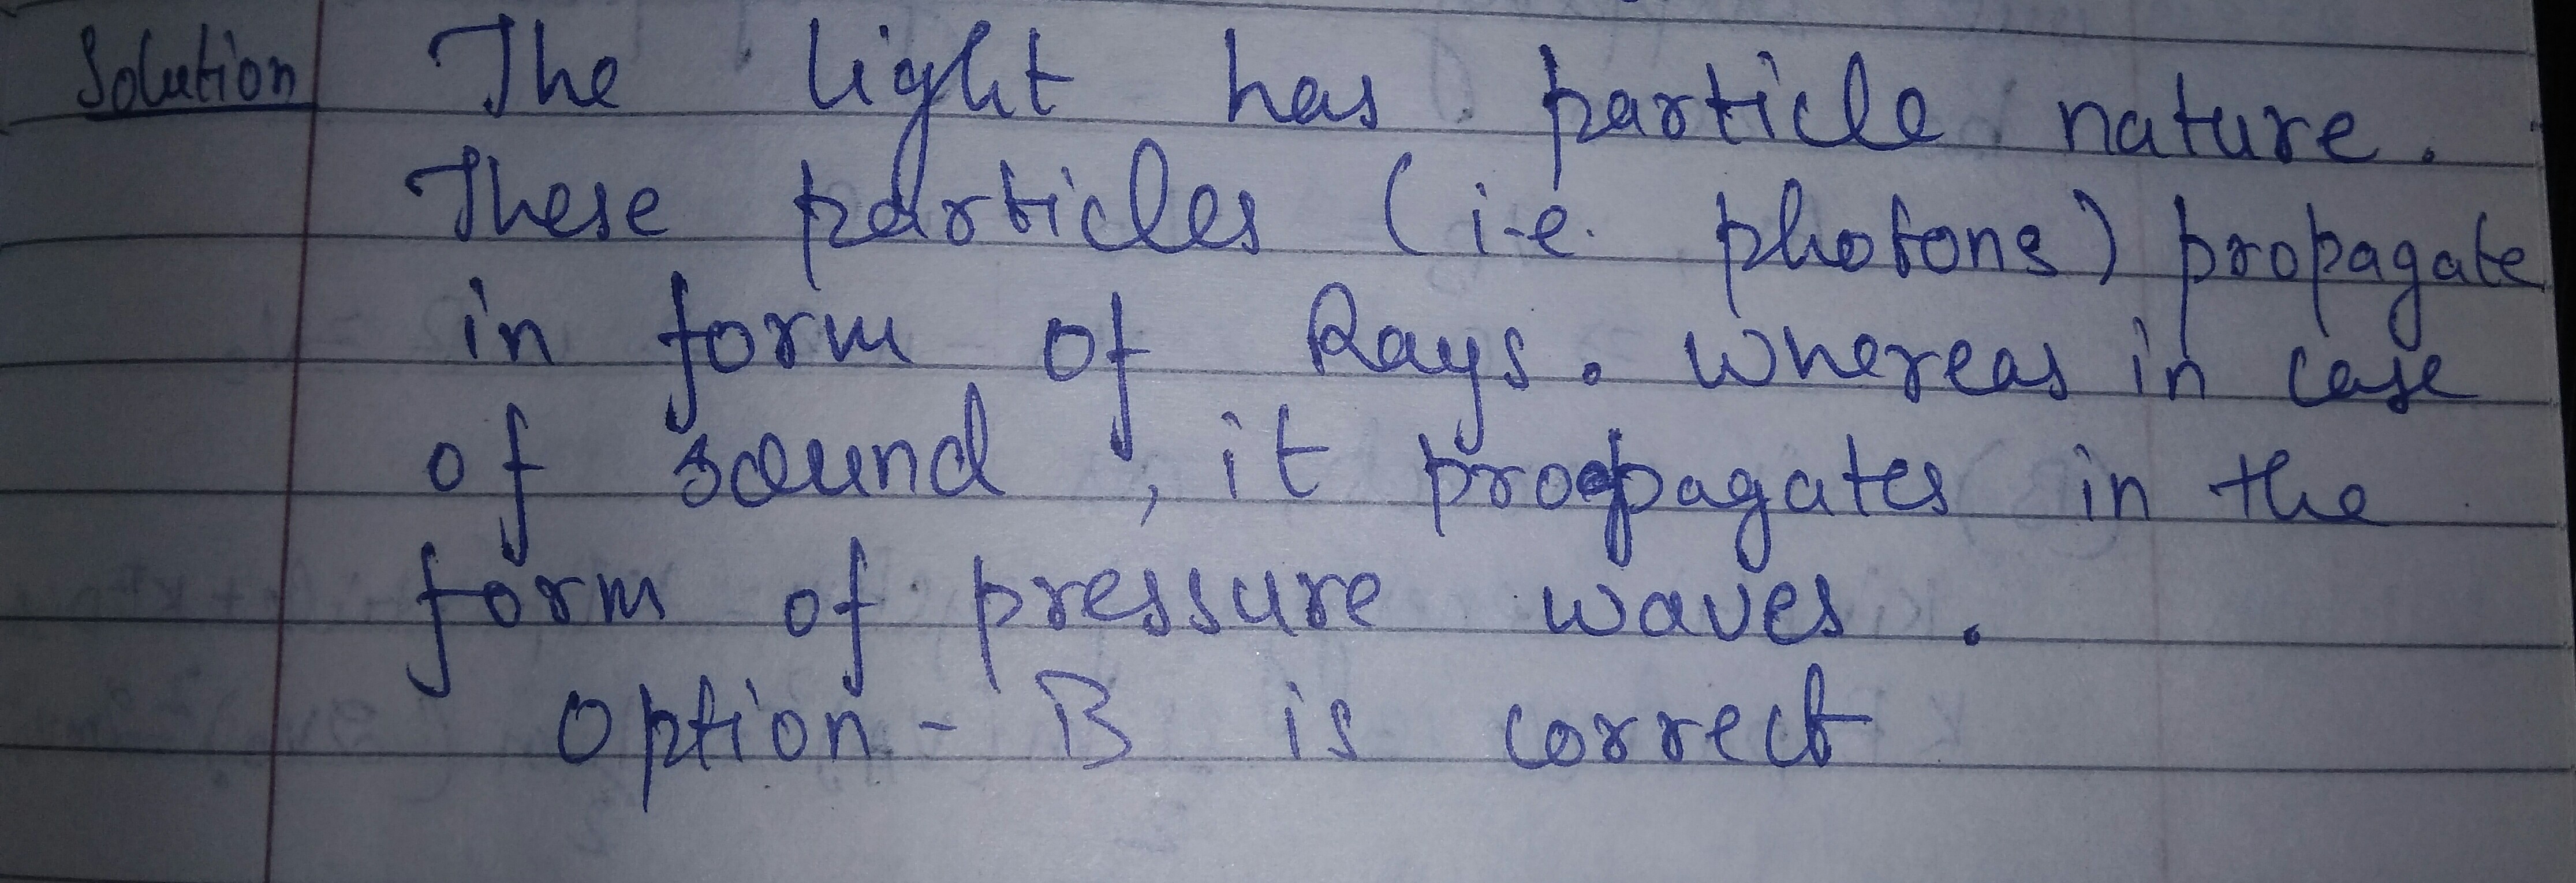 Solution The light has particle nature.
These particles (i.e. photons) propagate
in form of Rays. Whereas in case
of sound, it propagates in the
form of pressure waves.
Option - B is correct